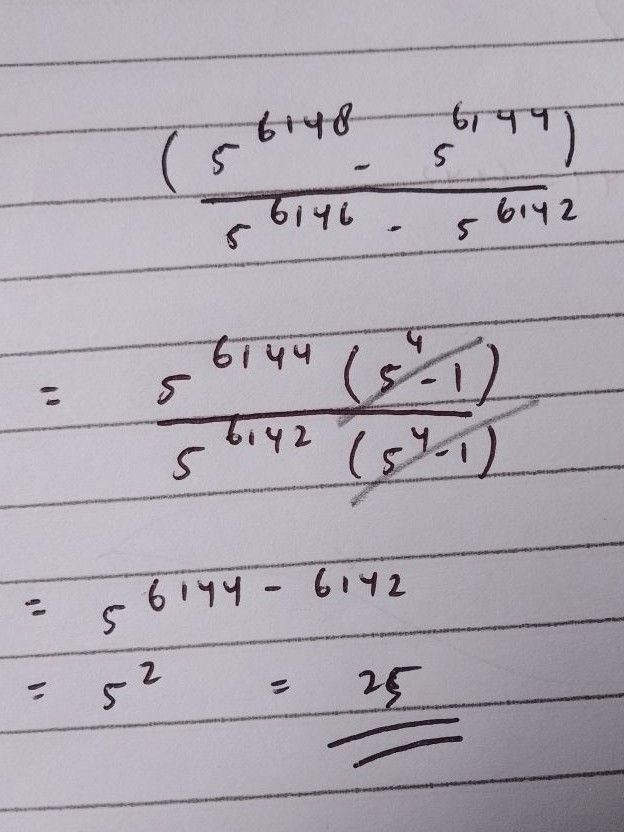 (5^6148 - 5^6144)
5^6146 - 5^6142
= 5^6144 (5^4 - 1)
5^6142 (5^4 - 1)
= 5^6144 - 6142
= 5^2 = 25